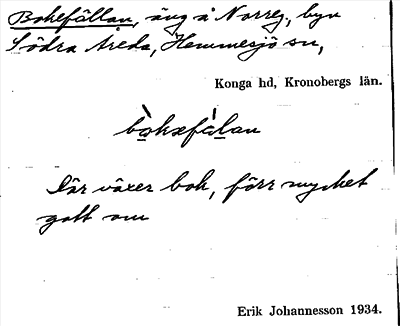 Bokefällan, äng å Norreg, byn
Södra Åreda, Hemmesjö sn,
Konga hd, Kronobergs län.
bokæfälan
Där växer bok, förr mycket
gott om
Erik Johannesson 1934.